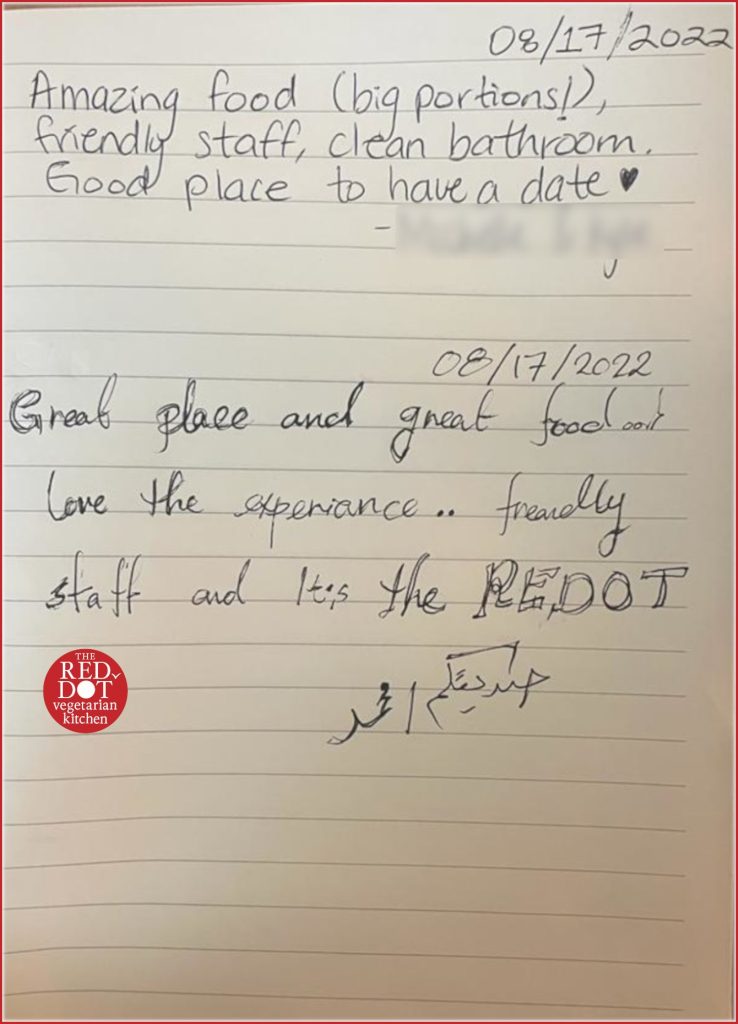 08/17/2022
Amazing food (big portions!),
friendly staff, clean bathroom.
Good place to have a date ♥
-
08/17/2022
Great place and great food...!
love the experiance.. freandly
staff and It's the REDOT
THE
RED
DOT
vegetarian
kitchen